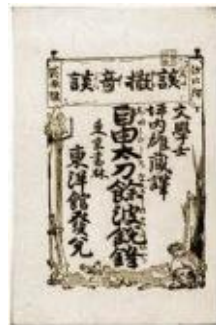 該撒奇談
文學士
坪内雄藏譯
自由太刀餘波鋭鋒
東京書林
東洋館發兌